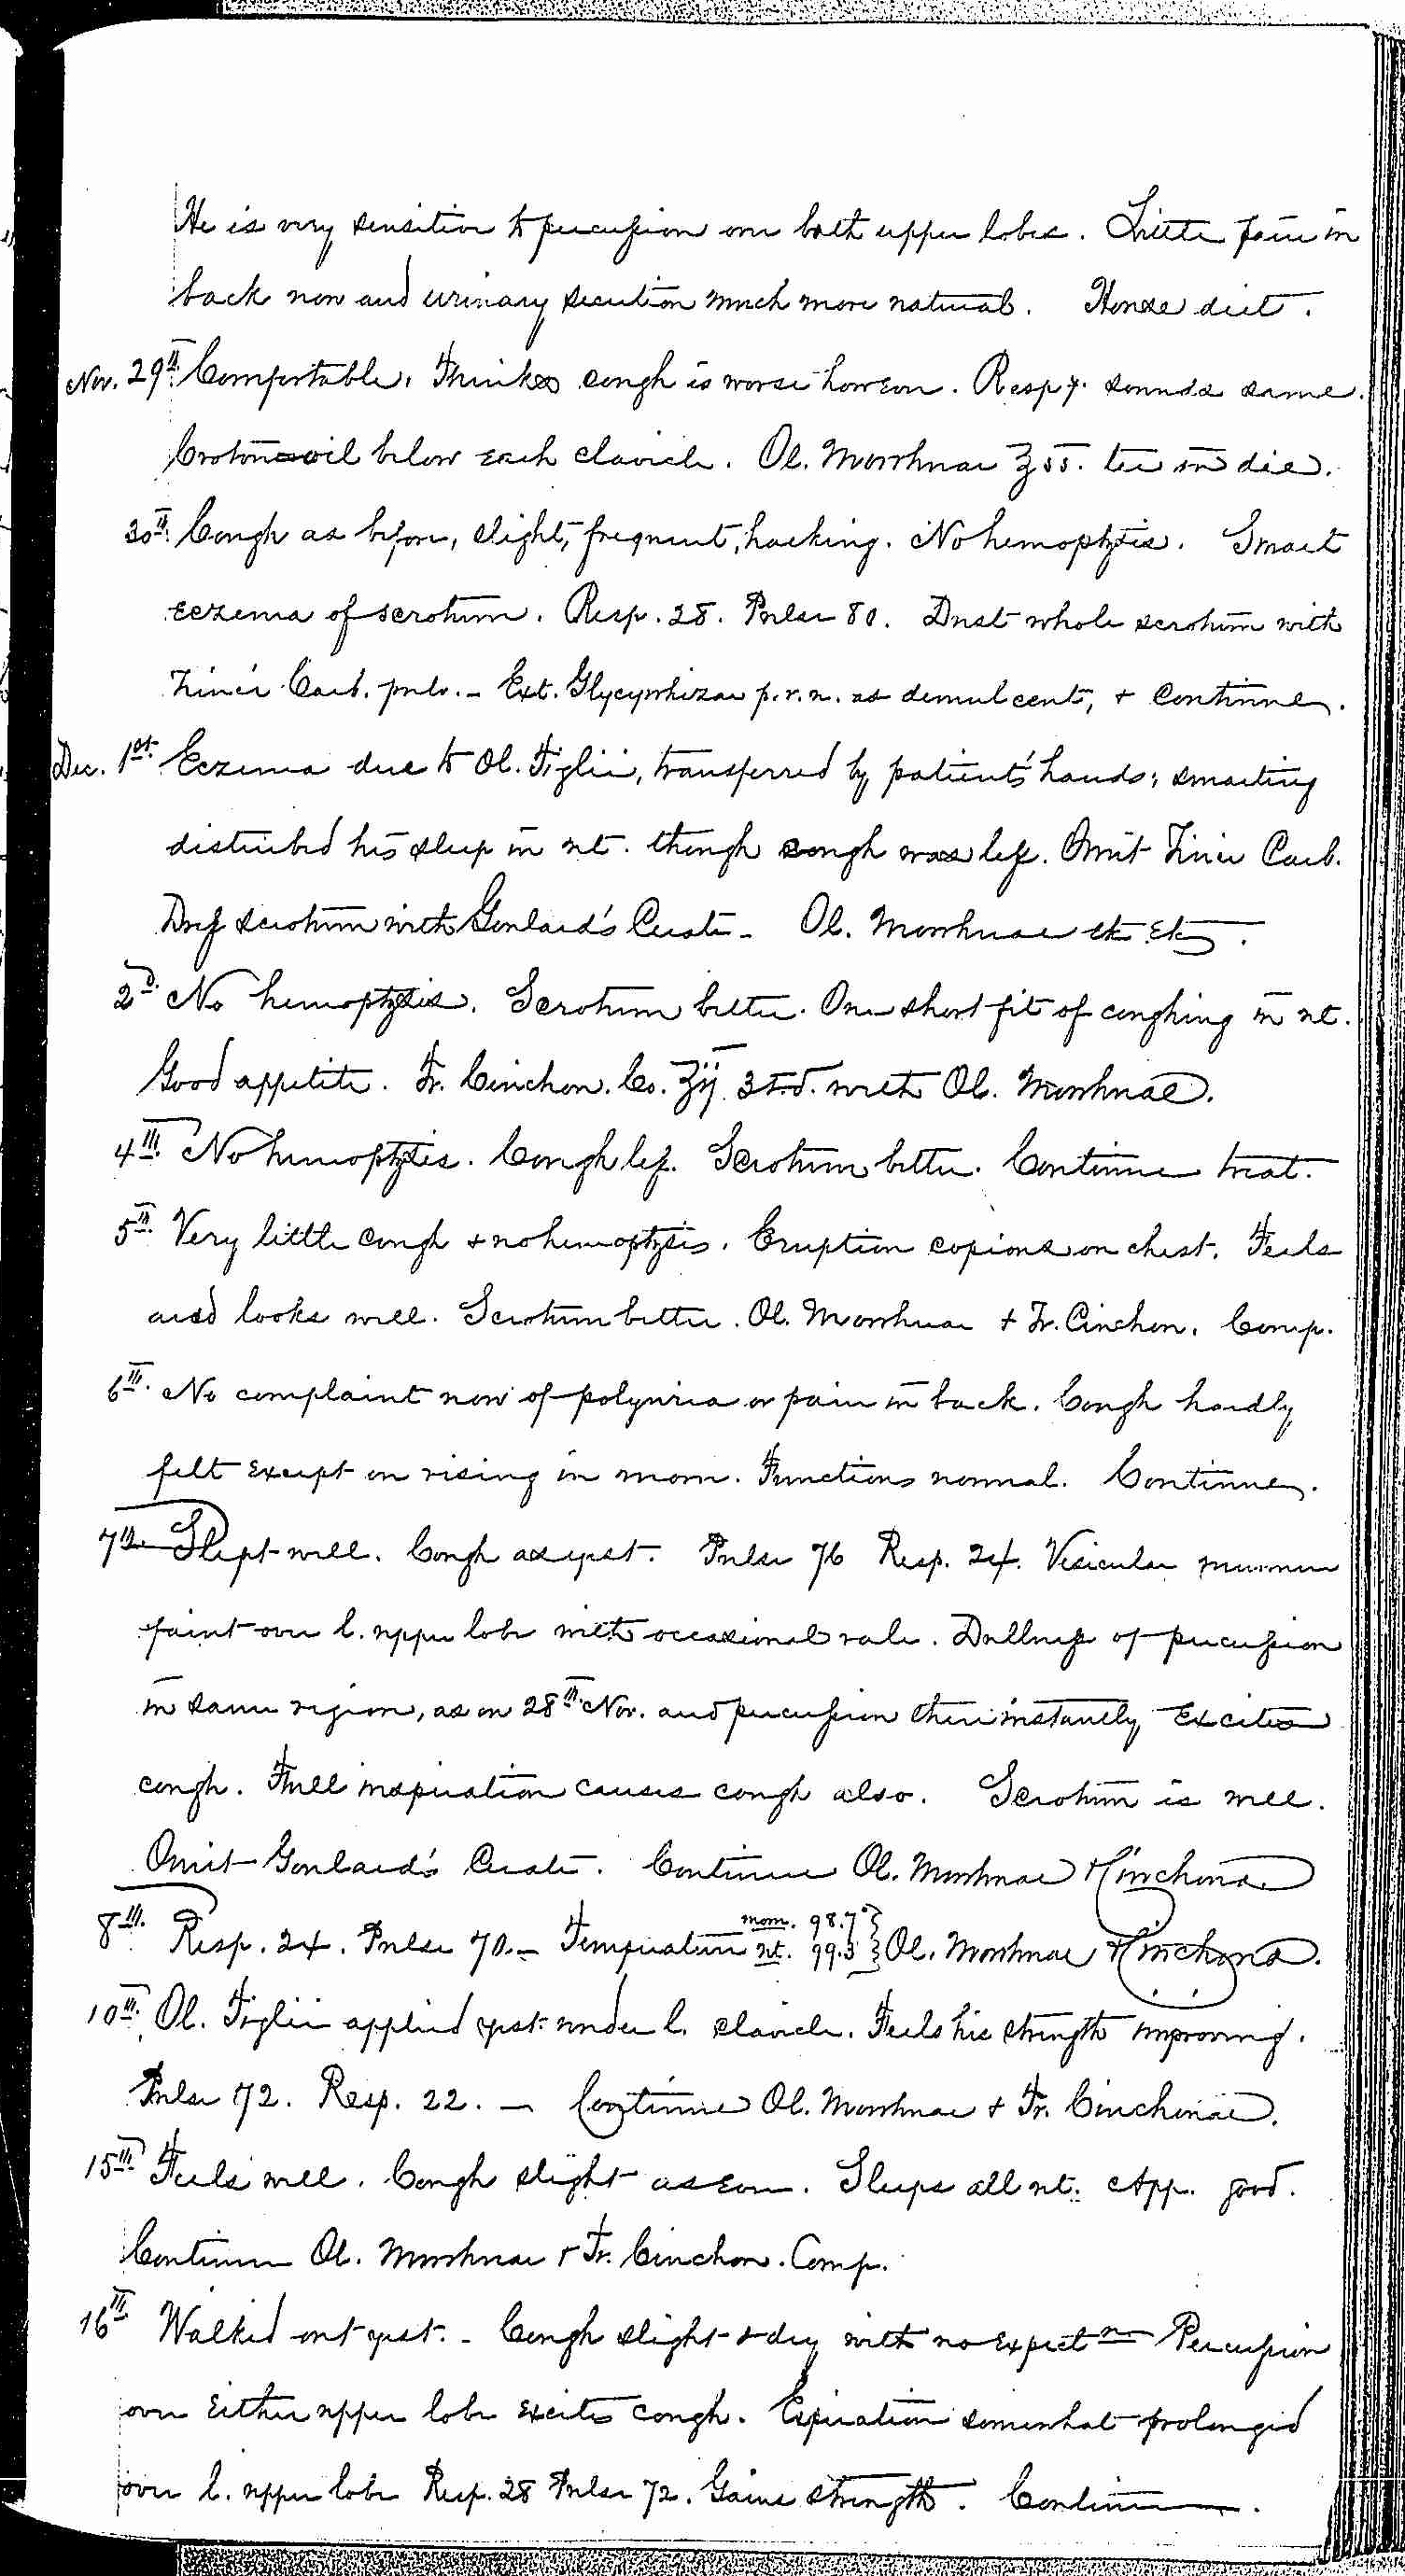 He is very sensitive to percussion over both upper lobes. Little pain in
back now and urinary secretion much more natural. House diet.
Nov. 29th Comfortable. Thinks cough is worse however. Respy. sounds same.
Croton oil below each clavicle. Ol. Morrhuae ℥ss. ter in die.
30th Cough as before, slight, frequent, hacking. No hemoptysis. Smart
eczema of scrotum. Resp. 28. Pulse 80. Dust whole scrotum with
Zinci Carb. pulv. - Ext. Glycyrrhizae p.r.n. as demulcent, & continue.
Dec. 1st. Eczema due to Ol. Tiglii, transferred by patient's hands; smarting
disturbed his sleep in nt. though cough was less. Omit Zinci Carb.
Dress scrotum with Goulard's Cerate - Ol. Morrhuae etc etc.
2d. No hemoptysis. Scrotum better. One short fit of coughing in nt.
Good appetite. Tr. Cinchon. Co. ʒij 3 t.d. with Ol. Morrhuae.
4th No hemoptysis. Cough less. Scrotum better. Continue treat.
5th Very little cough & no hemoptysis. Eruption copious on chest. Feels
and looks well. Scrotum better. Ol. Morrhuae & Tr. Cinchon. Comp.
6th. No complaint now of polyuria or pain in back. Cough hardly
felt except on rising in morn. Functions normal. Continue.
7th. Slept well. Cough as yest. Pulse 76 Resp. 24. Vesicular murmur
faint over l. upper lobe with occasional rale. Dullness of percussion
in same region, as on 28th Nov. and percussion there instantly excites
cough. Full inspiration causes cough also. Scrotum is well.
Omit Goulard's Cerate. Continue Ol. Morrhuae & Cinchona.
8th. Resp. 24. Pulse 70. - Temperature morn. 98.7° nt. 99.3 } Ol. Morrhuae & Cinchona.
10th. Ol. Tiglii applied yest. under l. clavicle. Feels his strength improving.
Pulse 72. Resp. 22. - Continue Ol. Morrhuae & Tr. Cinchonae.
15th Feels well. Cough slight as ever. Sleeps all nt. App. good.
Continue Ol. Morrhuae & Tr. Cinchon. Comp.
16th Walked out yest. - Cough slight & dry with no expectn. Percussion
over either upper lobe excites cough. Expiration somewhat prolonged
over l. upper lobe Resp. 28 Pulse 72. Gains strength. Continue.